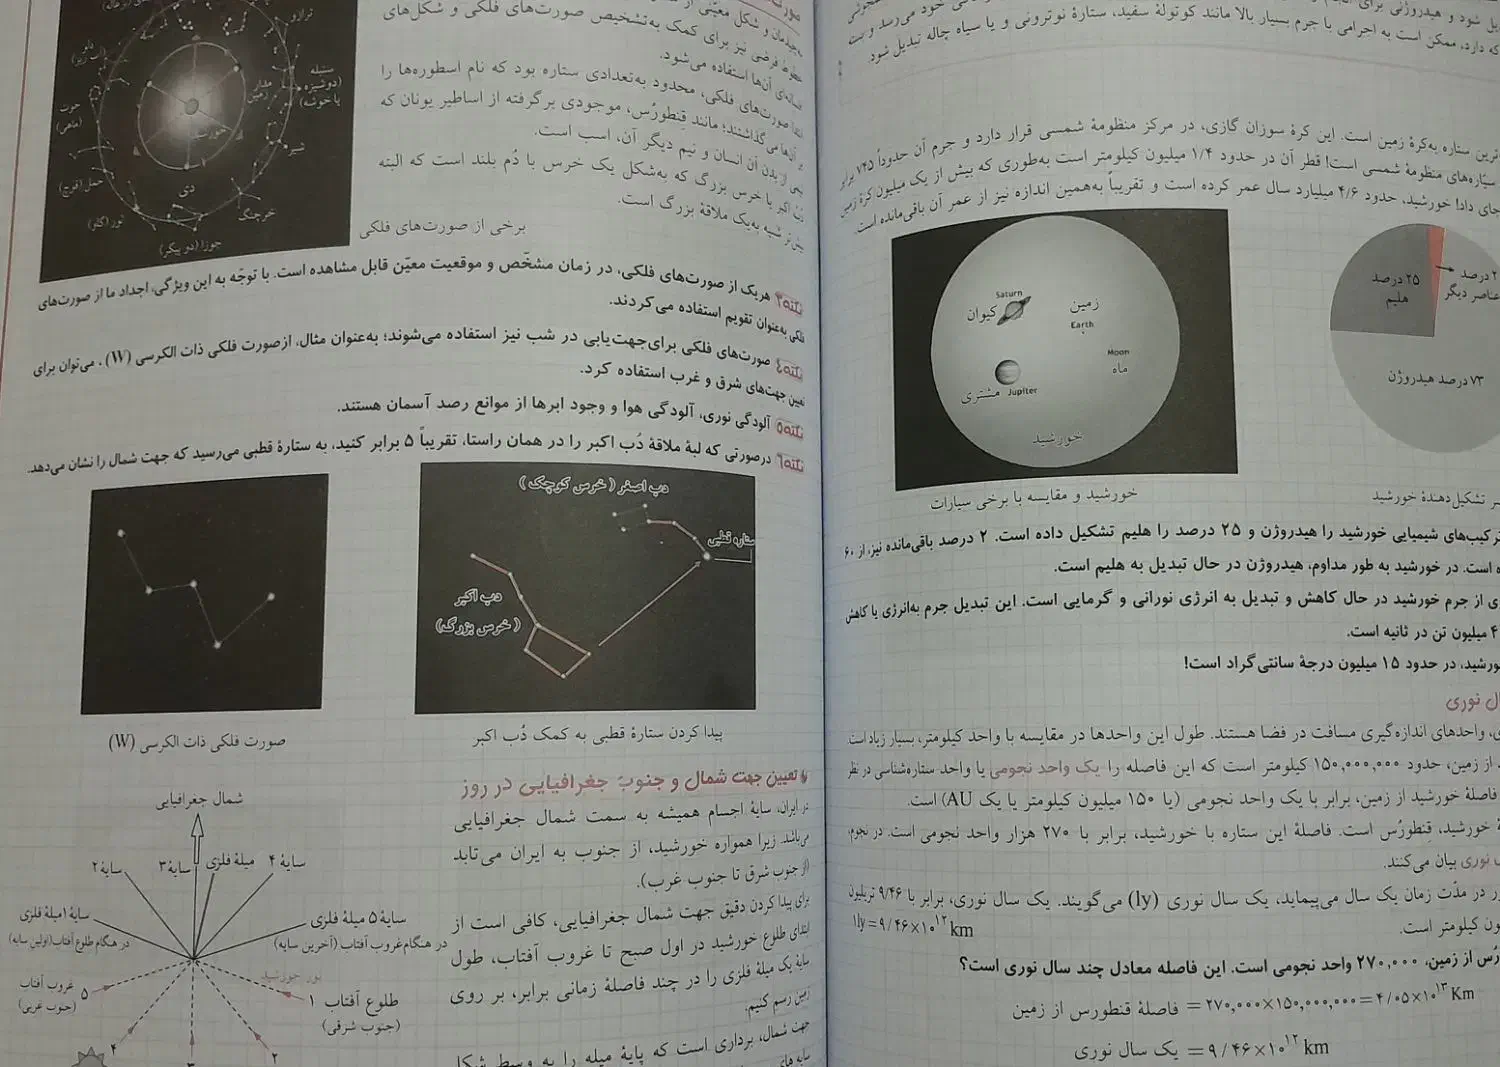 یل شود و هیدروژنی برای
که دارد، ممکن است به اجرامی با جرم بسیار بالا مانند کوتولهٔ سفید، ستارهٔ نوترونی و یا سیاه چاله تبدیل شود.
ترین ستاره به‌کرهٔ زمین است. این کرهٔ سوزان گازی، در مرکز منظومهٔ شمسی قرار دارد و جرم آن حدوداً ۷۴۵ برابر
سیّاره‌های منظومهٔ شمسی است! قطر آن در حدود ۱/۴ میلیون کیلومتر است به‌طوری که بیش از یک میلیون کرهٔ زمین
جای داد! خورشید، حدود ۴/۶ میلیارد سال عمر کرده است و تقریباً به‌همین اندازه نیز از عمر آن باقی‌مانده است.
۲ درصد
عناصر دیگر
۲۵ درصد
هلیم
۷۳ درصد هیدروژن
ر تشکیل‌دهندهٔ خورشید
Saturn
کیوان
زمین
Earth
Moon
ماه
Jupiter
مشتری
خورشید
خورشید و مقایسه با برخی سیارات
ترکیب‌های شیمیایی خورشید را هیدروژن و ۲۵ درصد را هلیم تشکیل داده است. ۲ درصد باقی‌مانده نیز، از ۶۰
ه است. در خورشید به طور مداوم، هیدروژن در حال تبدیل به هلیم است.
ی از جرم خورشید در حال کاهش و تبدیل به انرژی نورانی و گرمایی است. این تبدیل جرم به‌انرژی یا کاهش
۴ میلیون تن در ثانیه است.
ورشید، در حدود ۱۵ میلیون درجهٔ سانتی‌گراد است!
ال نوری
ی، واحدهای اندازه‌گیری مسافت در فضا هستند. طول این واحدها در مقایسه با واحد کیلومتر، بسیار زیاد است.
د از زمین، حدود ۱۵۰,۰۰۰,۰۰۰ کیلومتر است که این فاصله را یک واحد نجومی یا واحد ستاره‌شناسی در نظر
فاصلهٔ خورشید از زمین، برابر با یک واحد نجومی (یا ۱۵۰ میلیون کیلومتر یا یک AU) است.
هٔ خورشید، قِنطورُس است. فاصلهٔ این ستاره با خورشید، برابر با ۲۷۰ هزار واحد نجومی است. در نجوم،
ل نوری بیان می‌کنند.
ور در مدّت زمان یک سال می‌پیماید، یک سال نوری (ly) می‌گویند. یک سال نوری، برابر با ۹/۴۶ تریلیون
ون کیلومتر است.
۱ly = ۹/۴۶×۱۰¹² km
ورُس از زمین، ۲۷۰,۰۰۰ واحد نجومی است. این فاصله معادل چند سال نوری است؟
فاصلهٔ قنطورس از زمین = ۲۷۰,۰۰۰×۱۵۰,۰۰۰,۰۰۰ = ۴/۰۵×۱۰¹³ Km
یک سال نوری = ۹/۴۶×۱۰¹² km
به‌تشخیص صورت‌های فلکی و شکل‌های
فرضی نیز برای کمک
آن‌ها استفاده می‌شود.
صورت‌های فلکی، محدود به‌تعدادی ستاره بود که نام اسطوره‌ها را
آن‌ها می‌گذاشتند؛ مانند قِنطورُس، موجودی برگرفته از اساطیر یونان که
از بدن آن انسان و نیم دیگر آن، اسب است.
دُبّ اکبر یا خرس بزرگ که به‌شکل یک خرس با دُم بلند است که البته
شبیه به‌یک ملاقهٔ بزرگ است.
ترازو
سنبله
(دوشیزه
یا خوشه)
مدار
زمین
خورشید
شیر
دی
خرچنگ
جوزا (دو پیکر)
ثور (گاو)
حمل (قوچ)
حوت
(ماهی)
برخی از صورت‌های فلکی
نکته۳ هریک از صورت‌های فلکی، در زمان مشخّص و موقعیت معیّن قابل مشاهده است. با توجّه به این ویژگی، اجداد ما از صورت‌های
فلکی به‌عنوان تقویم استفاده می‌کردند.
نکته۴ صورت‌های فلکی برای‌جهت‌یابی در شب نیز استفاده می‌شوند؛ به‌عنوان مثال، ازصورت فلکی ذات الکرسی (W) ، می‌توان برای
تعیین جهت‌های شرق و غرب استفاده کرد.
نکته۵ آلودگی نوری، آلودگی هوا و وجود ابرها از موانع رصد آسمان هستند.
نکته۶ درصورتی که لبهٔ ملاقهٔ دُب اکبر را در همان راستا، تقریباً ۵ برابر کنید، به ستارهٔ قطبی می‌رسید که جهت شمال را نشان می‌دهد.
دب اصغر ( خرس کوچک )
ستاره قطبی
دب اکبر
( خرس بزرگ)
پیدا کردن ستارهٔ قطبی به کمک دُب اکبر
صورت فلکی ذات الکرسی (W)
تعیین جهت شمال و جنوب جغرافیایی در روز
در ایران، سایهٔ اجسام همیشه به سمت شمال جغرافیایی
می‌باشد. زیرا همواره خورشید، از جنوب به ایران می‌تابد
(از جنوب شرق تا جنوب غرب).
برای پیدا کردن دقیق جهت شمال جغرافیایی، کافی است از
ابتدای طلوع خورشید در اول صبح تا غروب آفتاب، طول
سایهٔ یک میلهٔ فلزی را در چند فاصلهٔ زمانی برابر، بر روی
زمین رسم کنیم.
جهت شمال، برداری است که پایهٔ میله را به وسط شکل
سایه های
شمال جغرافیایی
سایهٔ ۴
میلهٔ فلزی
سایهٔ ۳
سایهٔ ۲
سایهٔ ۵ میلهٔ فلزی
در هنگام غروب آفتاب (آخرین سایه)
سایهٔ ۱ میلهٔ فلزی
در هنگام طلوع آفتاب(اولین سایه)
نور خورشید
غروب آفتاب
(جنوب غربی)
۵
۱ طلوع آفتاب
(جنوب شرقی)
۴
۳
۲